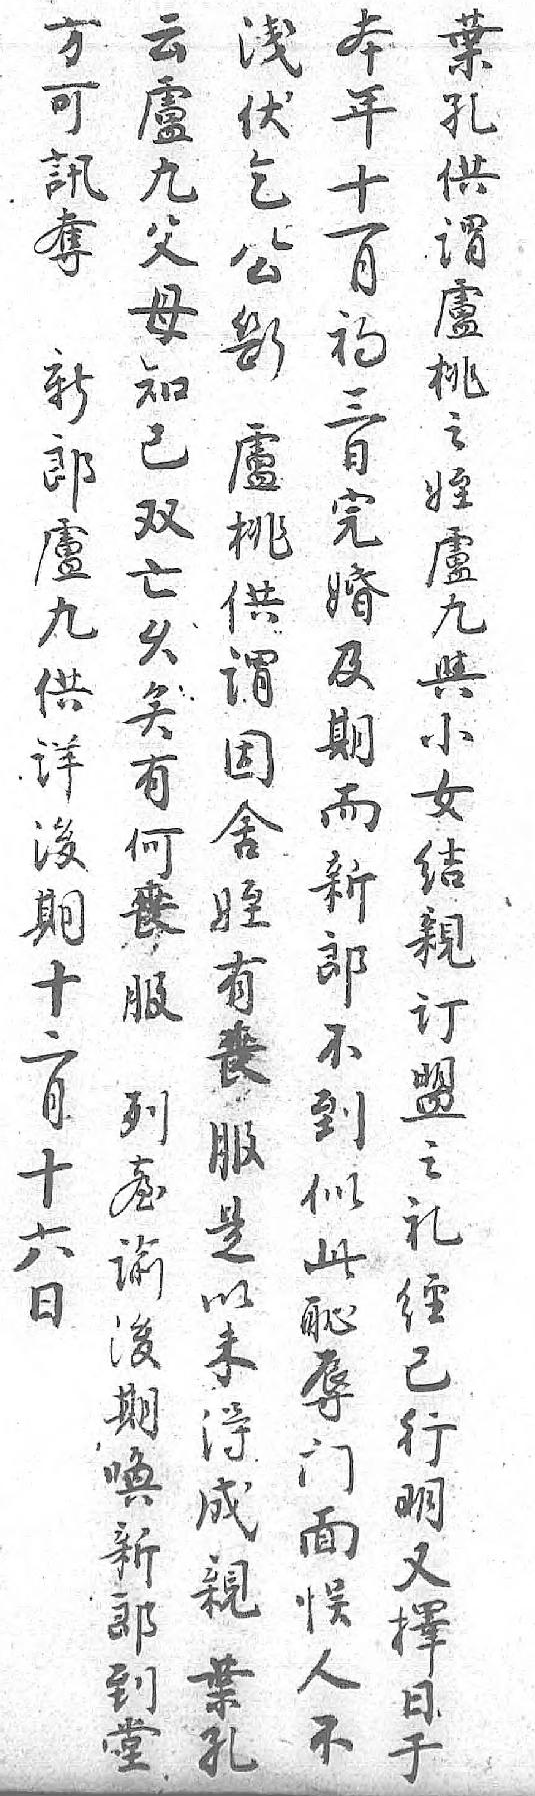 葉孔供謂盧桃之姪盧九與小女结親订盟之礼經已行明又擇日于
本年十一月初三日完婚及期而新郎不到似此恥辱门面悮人不
浅伏乞公斷　盧桃供謂因舍姪有丧服是以未得成親　葉孔
云盧九父母知已双亡久矣有何丧服　列台谕後期喚新郎到堂
方可訊奪　新郎盧九供详後期十二月十六日